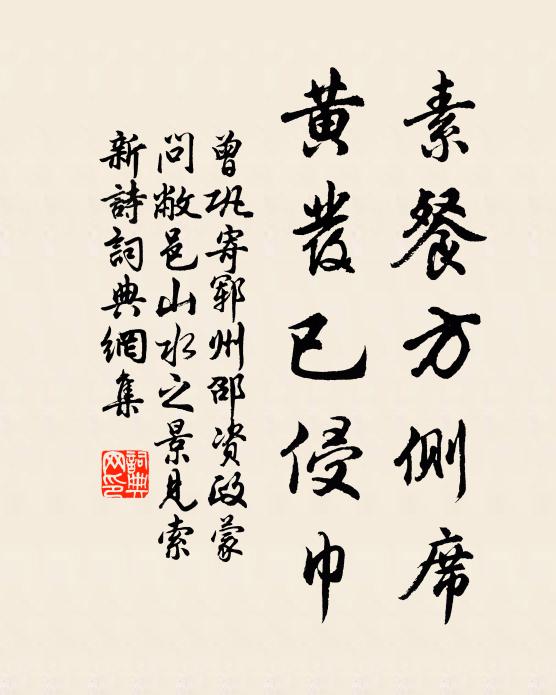 素餐方側席
黃發已侵巾
曾巩寄鄆州邵资政蒙
問敝邑山水之景見索
新詩詞典網集
詞典
网印